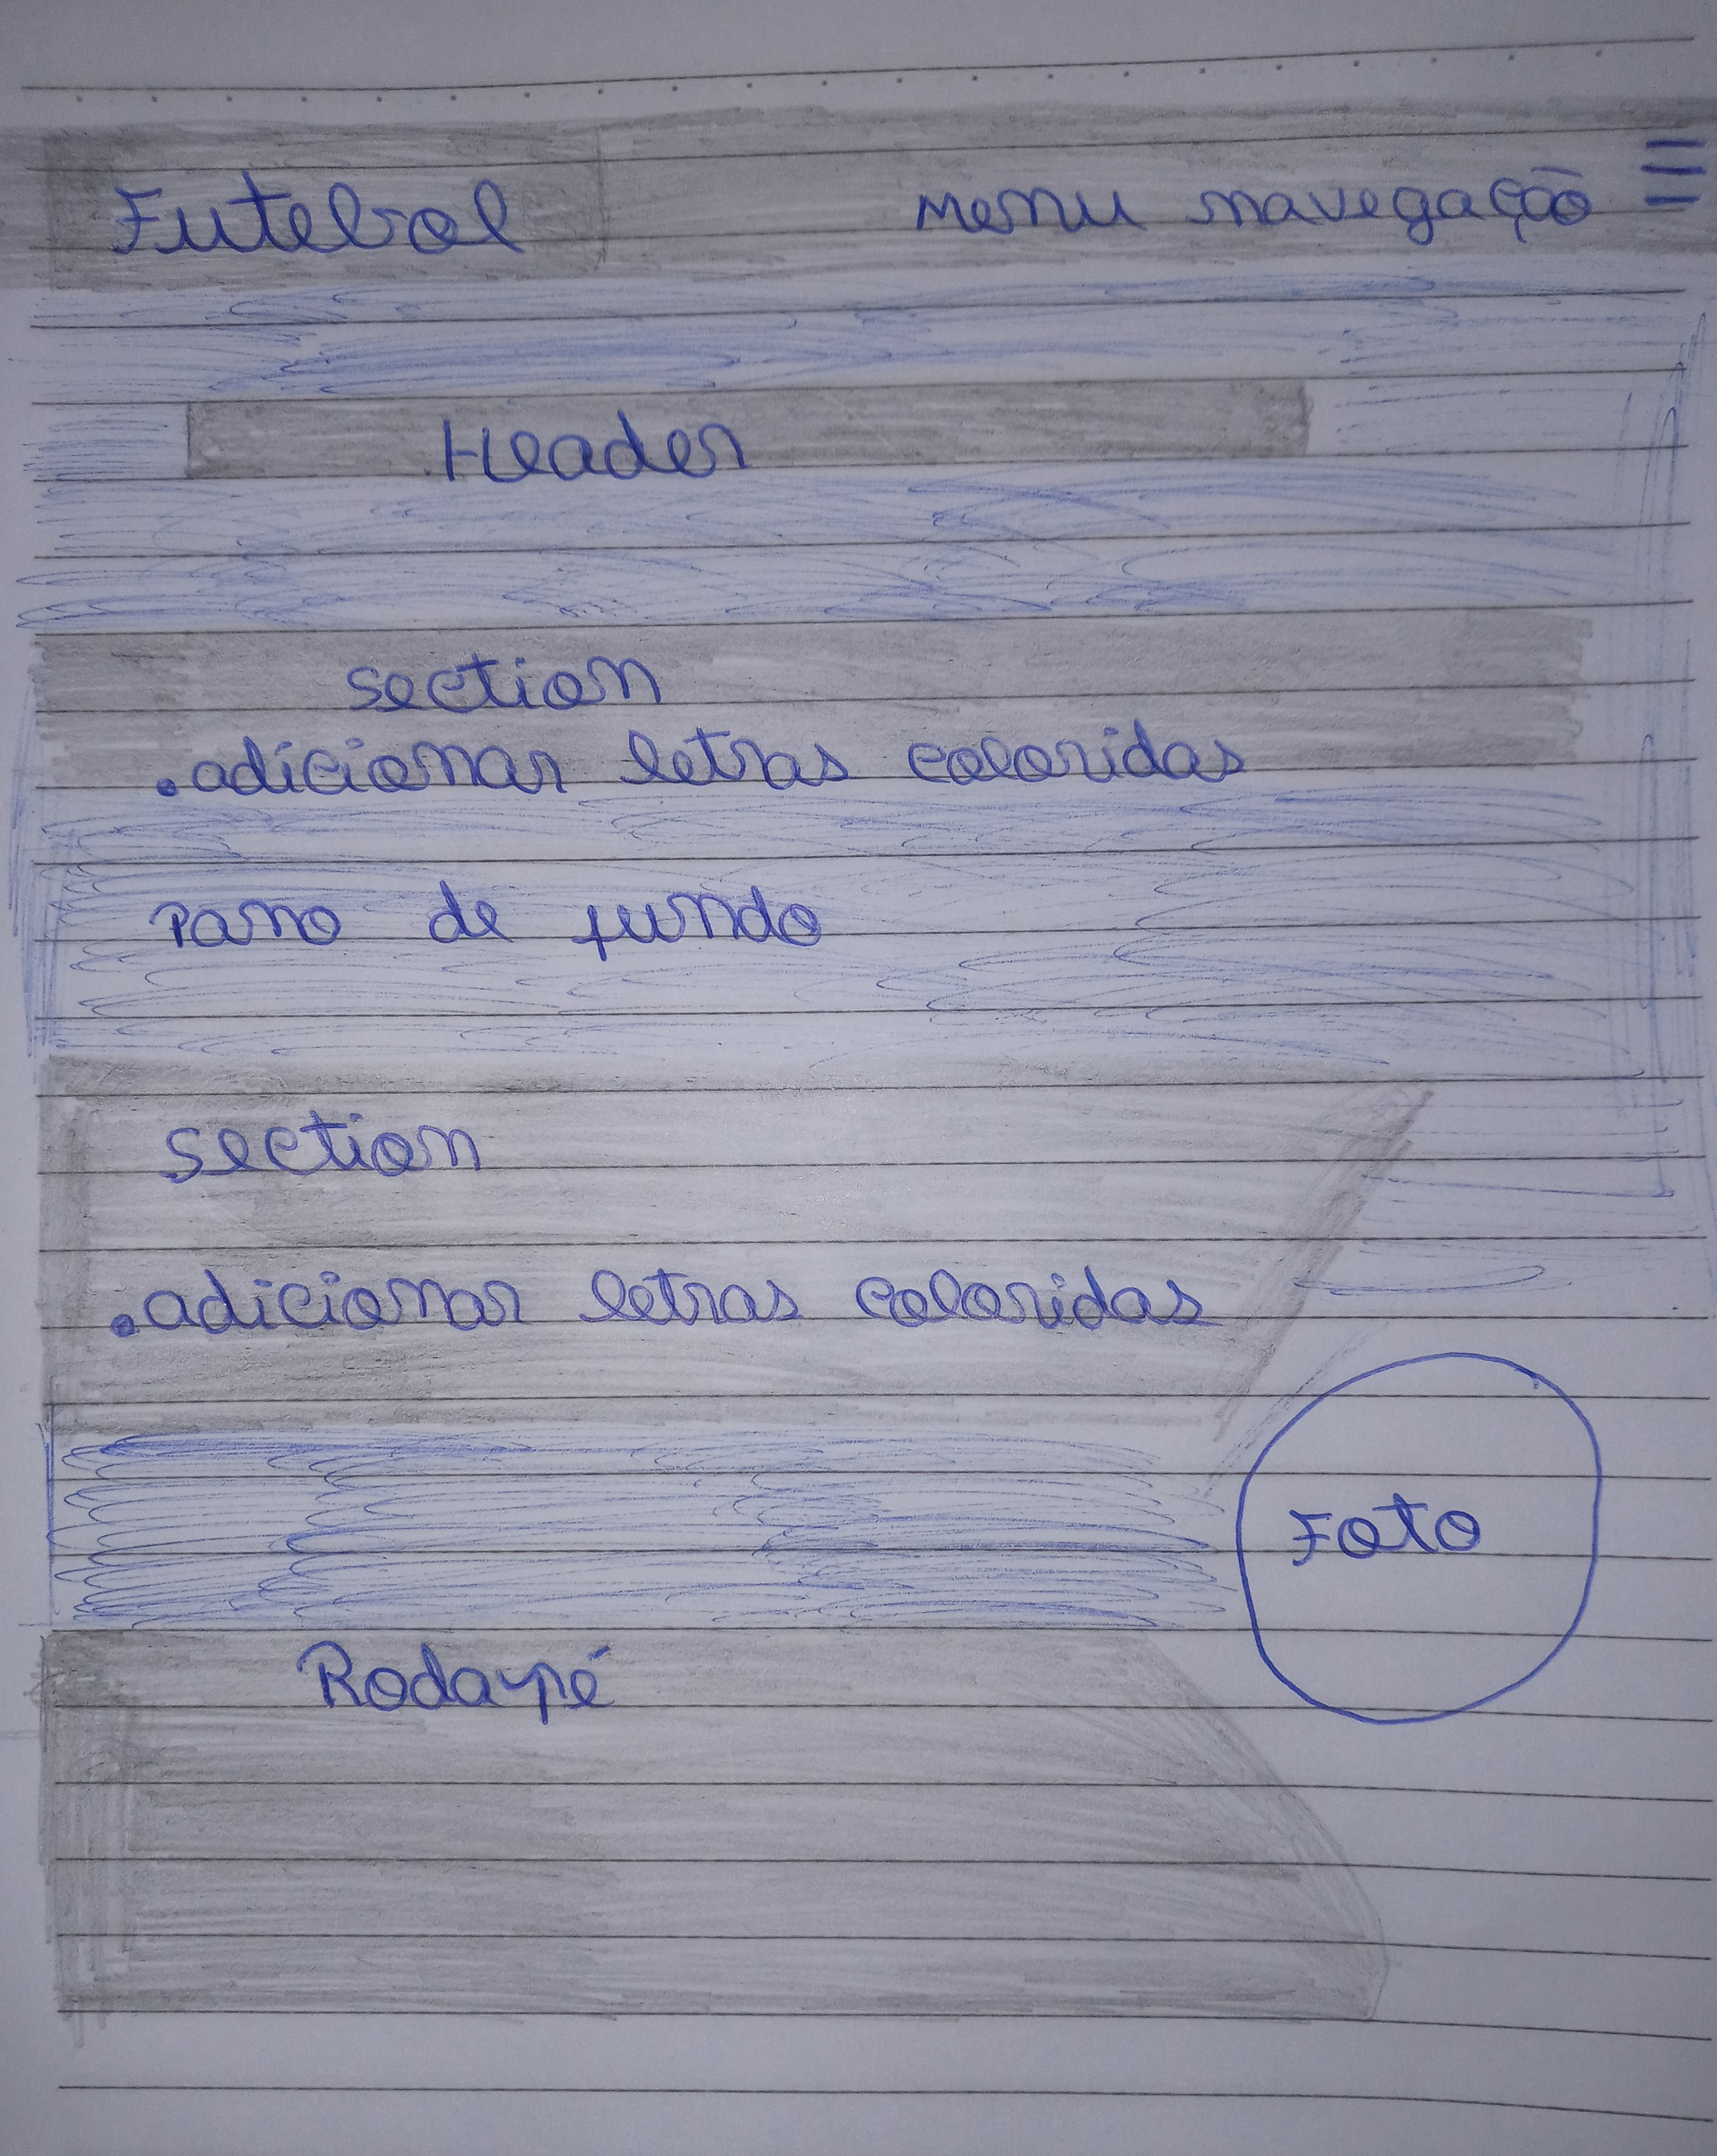 Futebol
menu navegação
Header
section
.adicionar letras coloridas
Pano de fundo
section
.adicionar letras coloridas
Foto
Rodapé